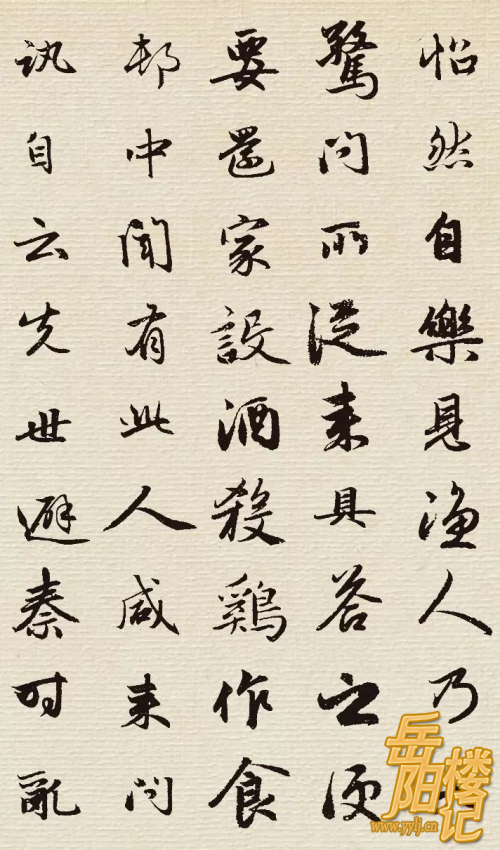 怡然自樂見漁人乃
驚問所從来具答之便
要還家設酒殺鷄作食
邨中聞有此人咸来問
訊自云先世避秦时亂
岳阳楼记
www.yylj.cn